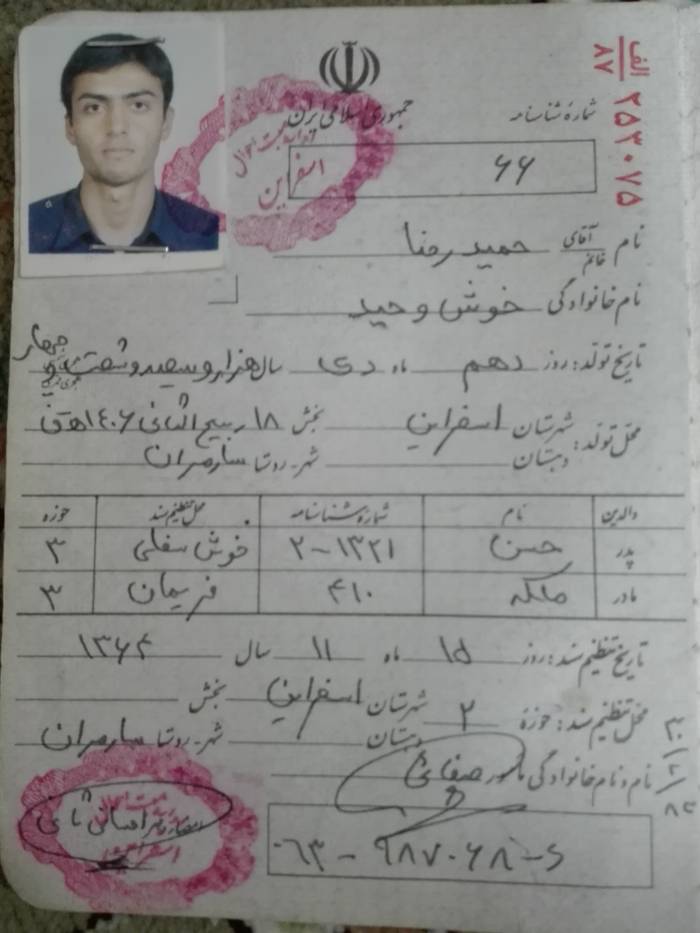 الف
۸۷
۲۵۳۰۷۵
جمهوری اسلامی ایران
شماره شناسنامه
۶۶
ثبت احوال
اسفراین
نام آقای خانم حمیدرضا
نام خانوادگی خوش وحید
تاریخ تولد: روز دهم ماه دی سال هزار و سیصد و شصت و چهار
محل تولد: شهرستان اسفراین بخش ۱۸ ربیع الثانی ۱۴۰۶ هـ ق
دهستان شهر-روستا سارمران
والدین نام شماره شناسنامه محل تنظیم سند حوزه
پدر حسن ۲-۱۳۲۱ خوش سفلی ۳
مادر ملکه ۴۱۰ فریمان ۳
تاریخ تنظیم سند: روز ۱۵ ماه ۱۱ سال ۱۳۶۴
محل تنظیم سند: حوزه ۲ شهرستان اسفراین بخش
دهستان شهر-روستا سارمران
نام و نام خانوادگی مامور صفائی